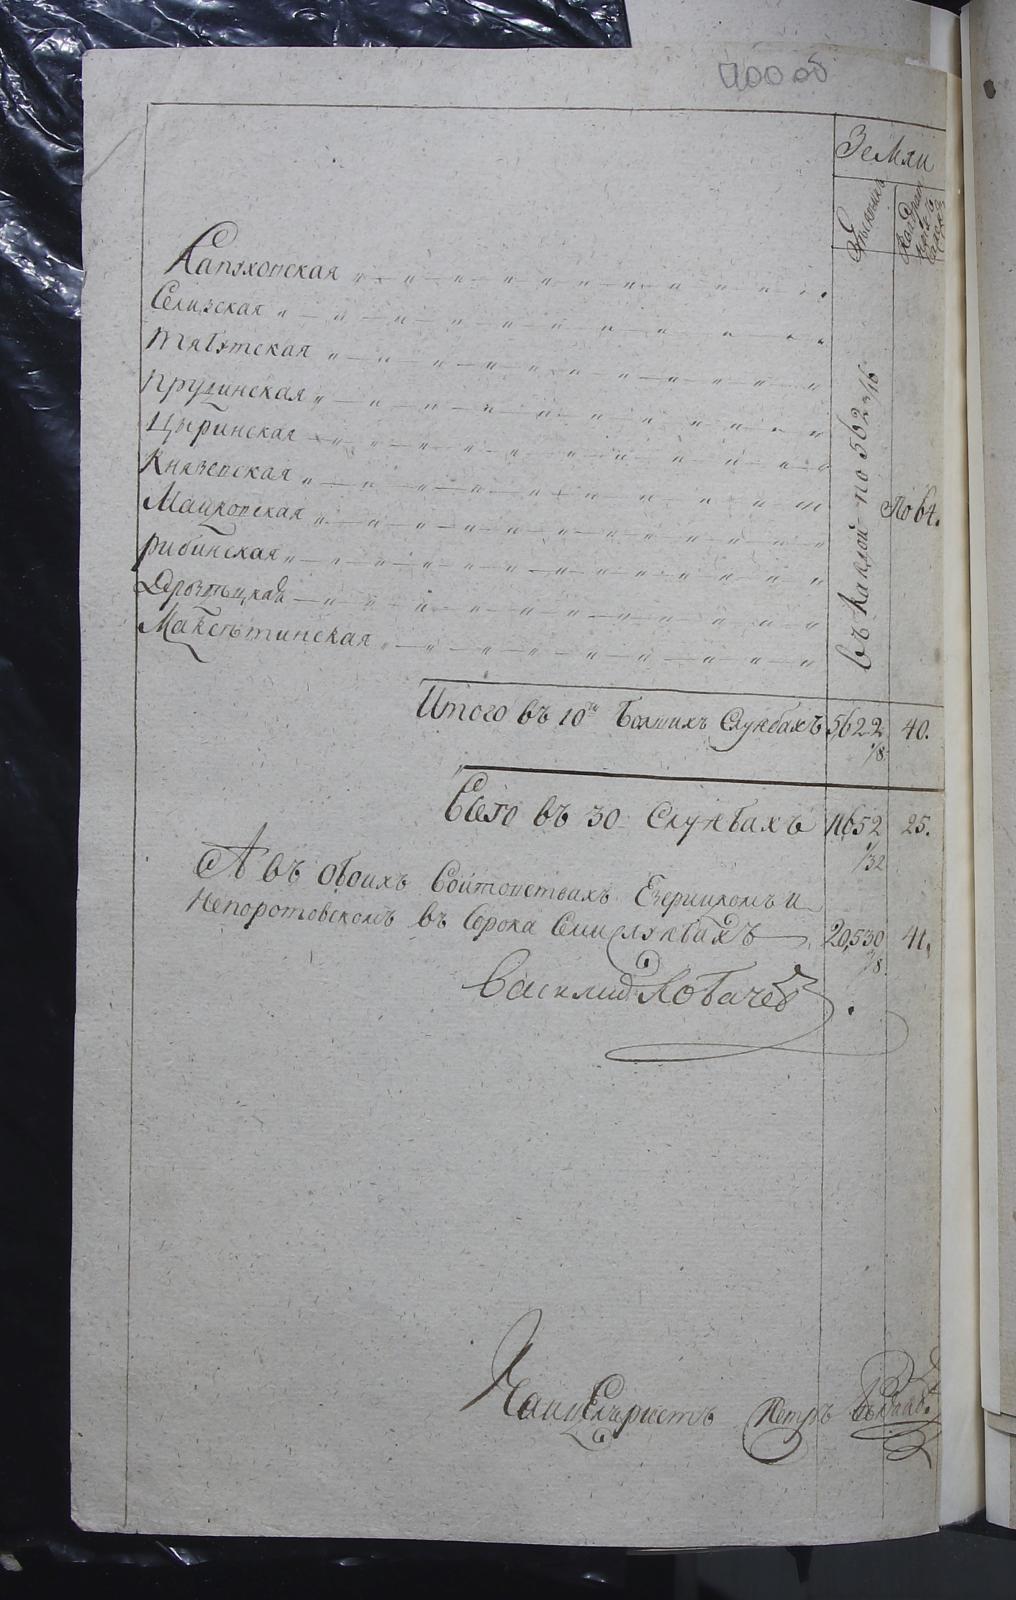 Земли
Капэхопская
Селизская
Тябутская
Прудинская
Цыринская
Князевская
Мацкопская
Рибинская
Дрозтецкая
Максѣтинская
въ каждой по 562 3/16
По 64.
Итого въ 10ти Болшихъ Службахъ 5622 1/8 40.
Всего въ 30 Службахъ 11652 1/32 25.
А въ обоихъ Войтовствахъ Езерицкомъ и
Непоротовскомъ въ Сорока Семи службахъ 20,530 41.
Василий Ковачев
Канцеляристъ Петръ